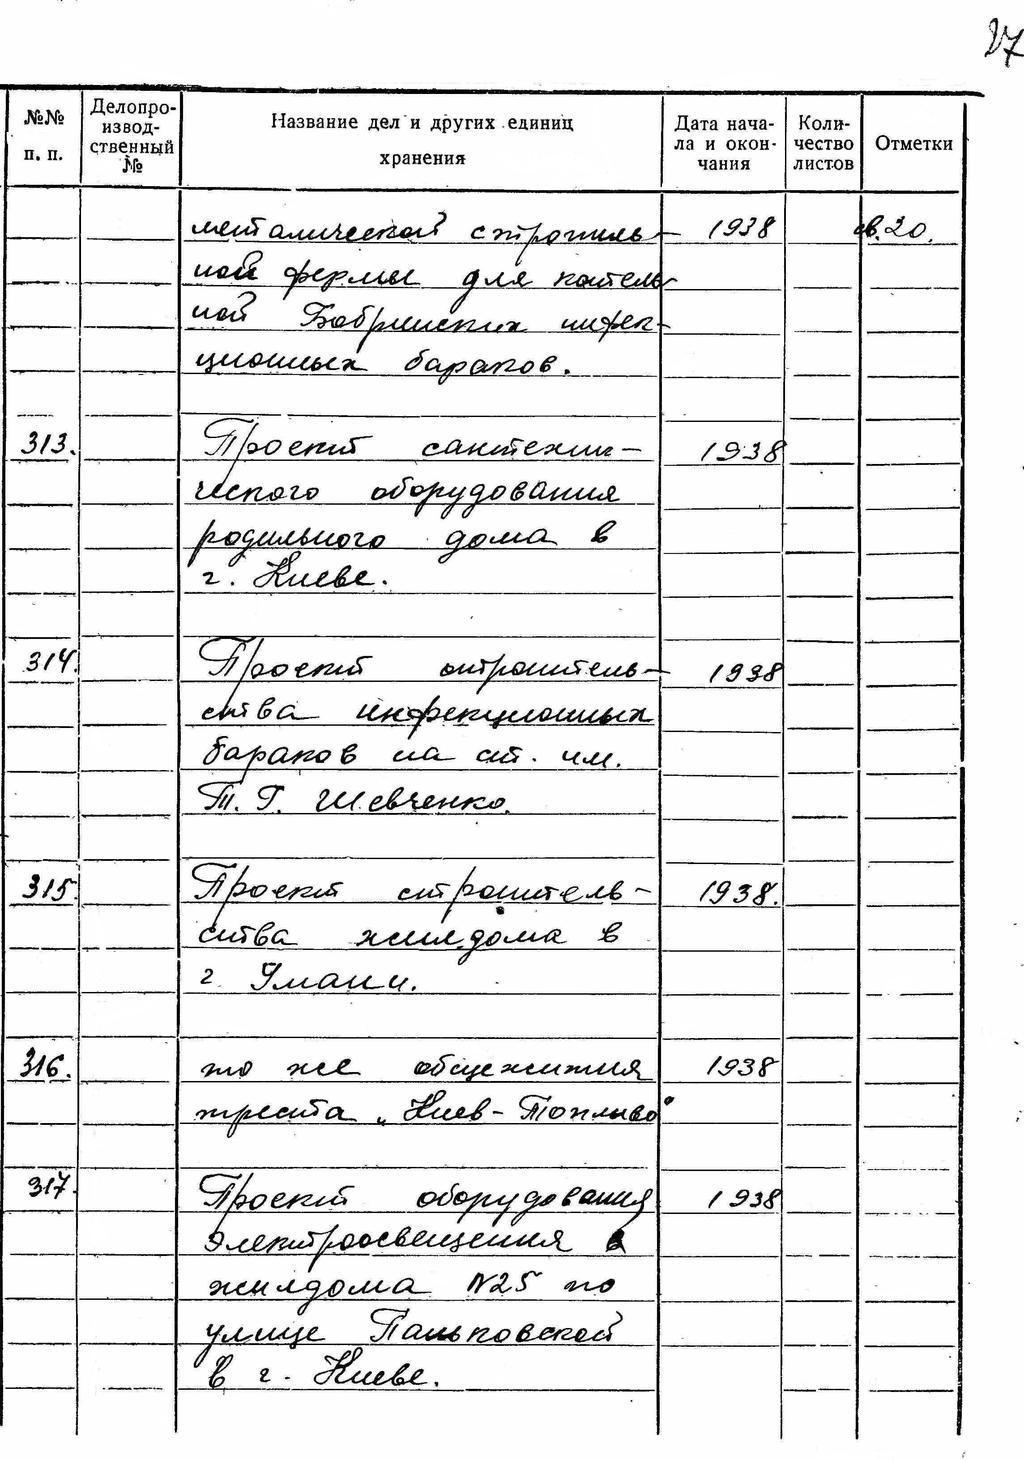 27
№№ п. п. Делопроизводственный № Название дел и других единиц хранения Дата начала и окончания Количество листов Отметки
металической стропиль- 1938 св.20.
ной фермы для котель-
ной Бобринских инфек-
ционных бараков.
313. Проект сантехни- 1938
ческого оборудования
родильного дома в
г. Киеве.
314. Проект строитель- 1938
ства инфекционных
бараков на ст. им.
Т. Г. Шевченко.
315. Проект строитель- 1938.
ства жилдома в
г. Умани.
316. то же общежития 1938
треста „Киев-Топливо"
317. Проект оборудования 1938
электроосвещения в
жилдома N25 по
улице Паньковской
в г. Киеве.